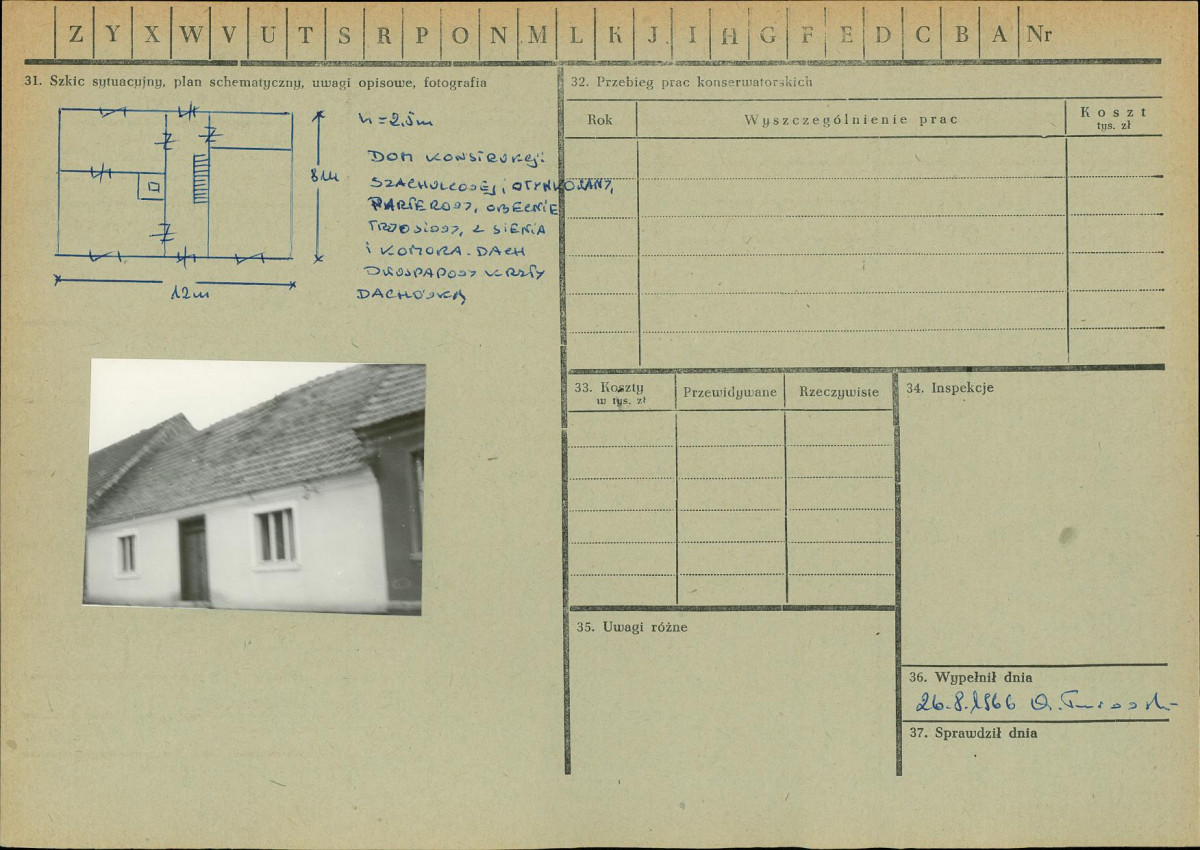 Z Y X W V U T S R P O N M L K J I H G F E D C B A Nr
31. Szkic sytuacyjny, plan schematyczny, uwagi opisowe, fotografia
h = 2,5m
8m
12m
DOM KONSTRUKCJI
SZACHULCOWEJ, OTYNKOWANY,
PARTEROWY, OBECNIE
TRZOSIOWY, Z SIENIĄ
I KOMORĄ. DACH
DWUSPADOWY KRYTY
DACHÓWKĄ
32. Przebieg prac konserwatorskich
Rok
Wyszczególnienie prac
Koszt
tys. zł
33. Koszty
w tys. zł
Przewidywane
Rzeczywiste
34. Inspekcje
35. Uwagi różne
36. Wypełnił dnia
26.8.1966
37. Sprawdził dnia